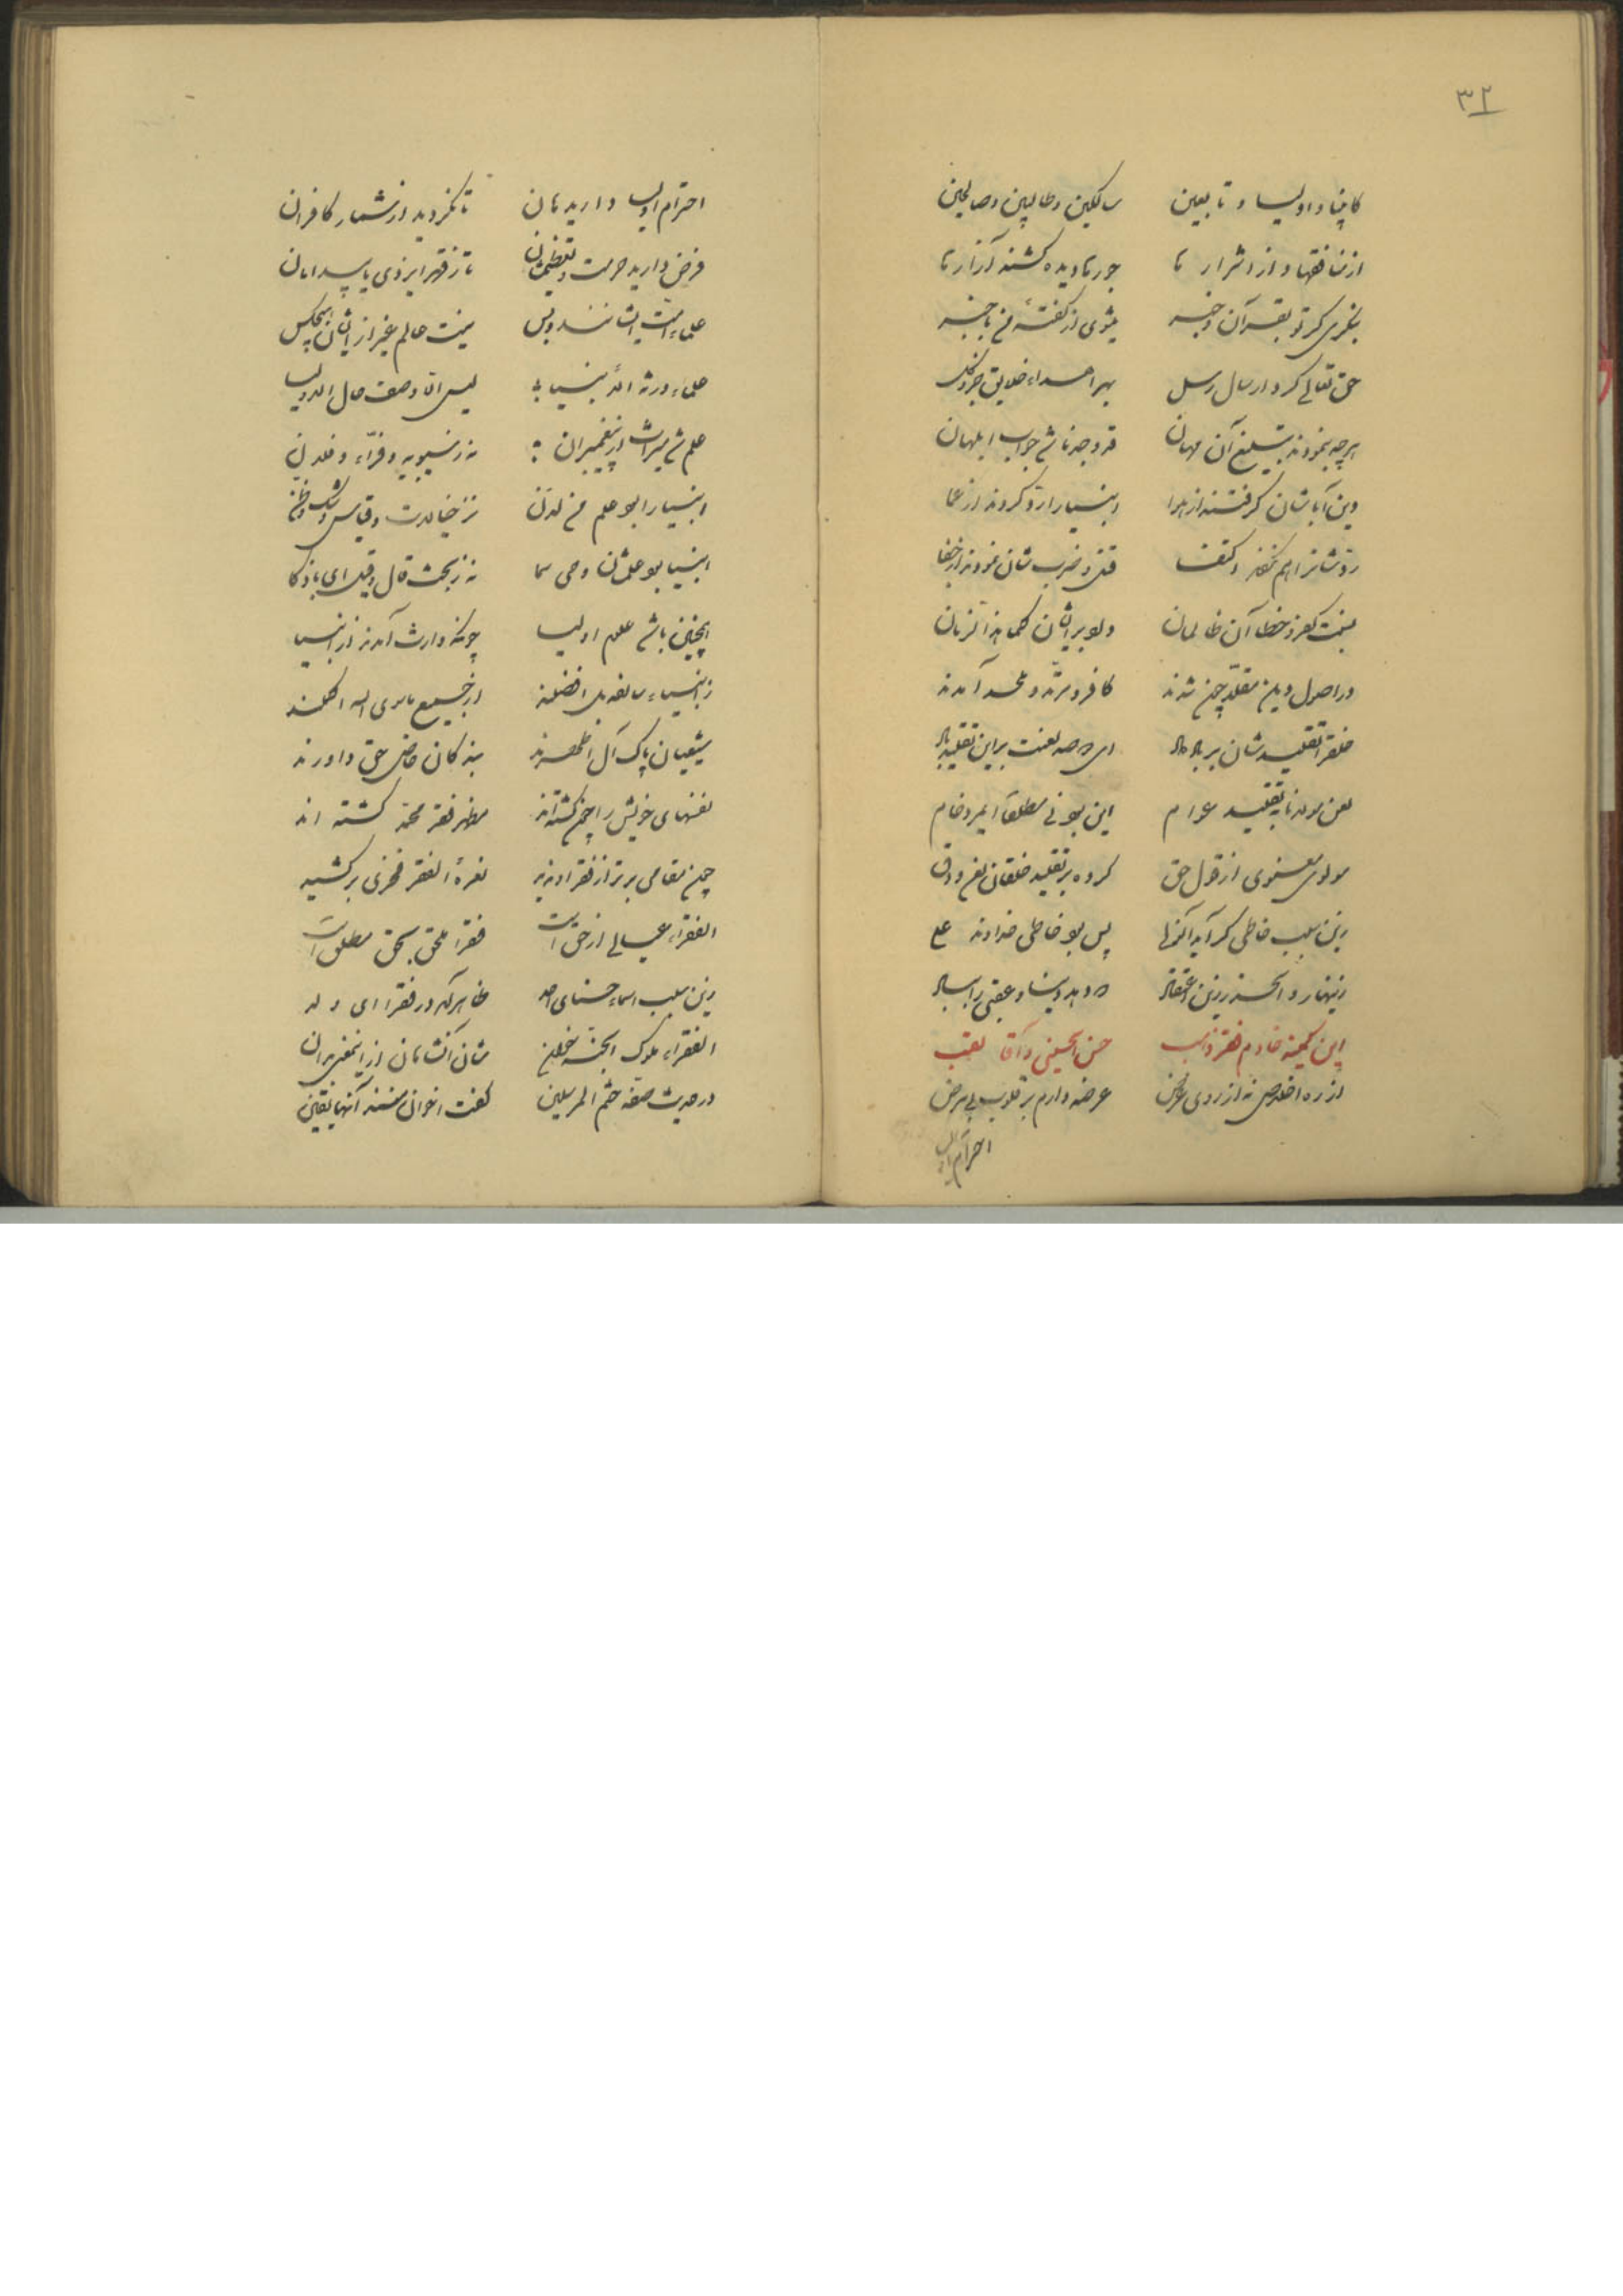 ٣٢
کانبیا و اولیا و تابعین سالکین و طالبین و صالحین
از منافقها و از اشرارها جورها دیده کشیده آزارها
بنگری گر تو بقرآن و خبر میشوی از گفتهٔ من باخبر
حق تعالی کرد ارسال رسل بهر اهداء خلایق جزو و کل
هرچه بنمودند تبلیغ آن مهان قد وجدنا شد جواب ابلهان
دین آباشان گرفتند از هوا انبیا را رد کردند از عما
ردشانرا هم نکرد اکتفا قتل و ضرب شان نمودند از جفا
نیست کفر و خطا آن ظالمان
در اصول دین مقلد چون شدند کافر و مرتد و ملحد آمدند
خلق را تقلیدشان بر باد داد ای دو صد لعنت بر این تقلید باد
لعن مولانا بتقلید عوام این بود نی مطلقا ای مرد خام
مولوی معنوی از قول حق کرده بر تقلید خلقان لعن و دق
زین سبب خاطی
زینهار و الحذر زین اعتقاد دهد دنیا و عقبی را بباد
این کمینه خادم فقر و ادب حسن الحسینی و آقا لقب
از ره اخلاص نه از روی غرض عرضه دارم بر قلوب بی مرض
احترام اولیا
احترام اولیا دارید هان تا نگردید از شمار کافران
فرض دارید حرمت و تعظیمشان تا ز قهر ایزدی یابید امان
علماء امت ایشانند و بس نیست عالم غیر از ایشان هیچکس
علماء ورثة الانبیا لیس الا وصف حال الاولیا
علم شد میراث از پیغمبران نه ز سیبویه و فراء و فلان
انبیا را بود علم من لدن نز خیالات و قیاس و شک و ظن
انبیا بود علمشان وحی سما نه ز بحث قال و قیل ای باذکا
اینچنین باشد علوم اولیا چونکه وارث آمدند از انبیا
ز انبیاء سالفه بل افضلند از جمیع ماسوی الله اکملند
شیعیان پاک آل اطهرند بندگان خاص حق داورند
نفسهای خویش را چون کشته‌اند مظهر فقر محمد گشته اند
چون مقامی برتر از فقر او ندید نعرهٔ الفقر فخری بر کشید
الفقراء عیالی از حق است فقرا ملحق بحق مطلق است
زین سبب اسماء حسنای احد ظاهر آمد در فقرا ای ولد
الفقراء ملوک الجنه شان آن شاهان
در حدیث صفه ختم المرسلین گفت اخوان منند آنها یقین